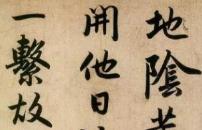 地陰
開他日
一繫故